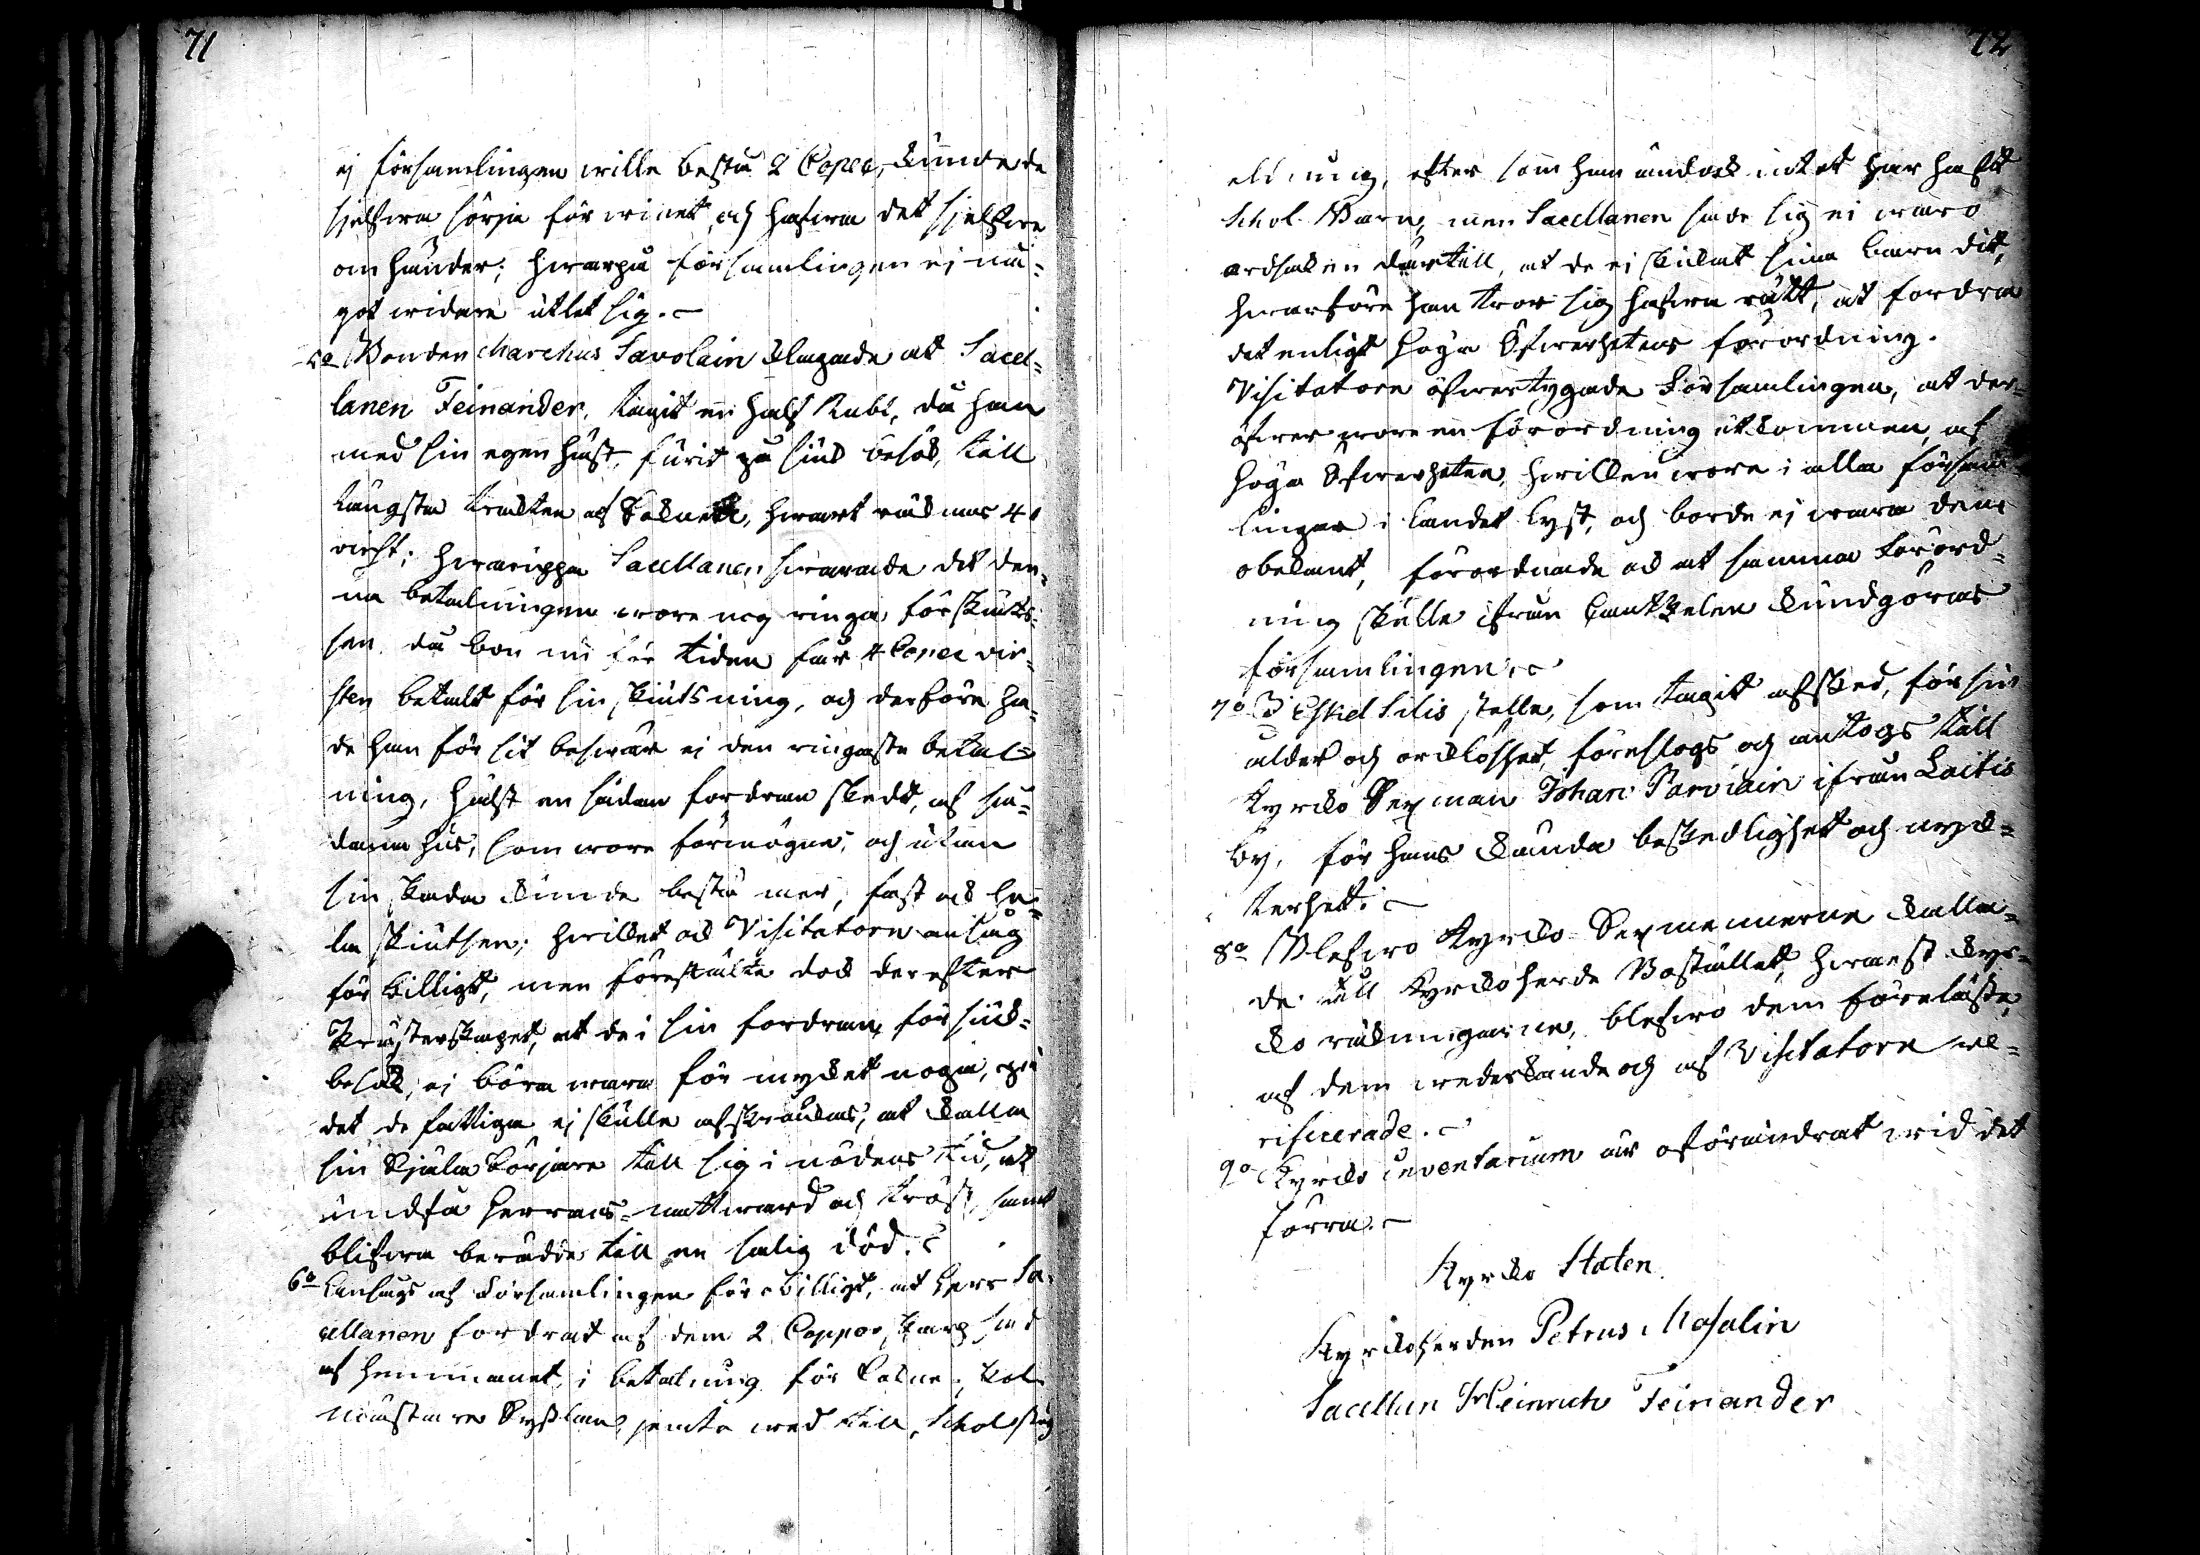 71
ej församlingen wille bestå 2 Copek, kunde de
sjelfwa sörja för winet, och hafwa det sjelfwa
om händer; hwarpå församlingen ej nå-
got widare utlet sig.
5o Bonden Marchus Savolain klagade att Sacel-
lanen Feinander, tagit en half Rubl, då han
med sin egen häst, farit på siuk besök, till
längsta trakten af Soknen, hwart räknas 40
wirst; hwaruppå Sacellanen swarade det den-
na betalningen wore nog ringa för skiuts-
sen, då bon nu för tiden får 4 Copek wir-
sten betalt för sin skiutsning, och derföre ha-
de han för sit beswär ej den ringaste betal-
ning, hälst en sådan fordran skedt, af så-
dana hus, som wore förmögne, och utan
sin skada kunde bestå mer, fast ock he-
la skiutsen; hwilket ock Visitatorn ansåg
för billigt, men förestälte dock derefter
Prästerskapet, at de i sin fordran, för siuk-
besök, ej böra wara för mycket noga, på
det de fattiga ej skulle afskräckas, at kalla
sin Själa Sörjare till sig i nödens tid, at
undfå Herrans nattward och tröst, samt
blifwa beredde till en salig död.
6o Ansågs af Församlingen för obilligt, at Herr Sa-
cellanen fordrat af dem 2 Coppor, Säd
af hemmanet, i betalning för
mästare Sysslan, jemte wed till Schol stug
72
eldning, efter som han ändock intet har haft
Schol Barn, men Sacellanen sade sig ei wara
ordsaken dertill, at de ej skickat sina barn dit,
hwarföre han tror sig hafwa rätt, at fordra
det enligt Höga Öfwerhetens förordning.
Visitatorn öfwertygade Församlingen, at der-
öfwer wore en förordning utkommen, af
Höga Öfwerheten, hwilken wore i alla försam-
lingar i landet lyst, och borde ej wara dem
obekant, förordnade ock at samma Förord-
ning skulle ifrån Cantzelen kundgöras
församlingen.
7o I Eskel Silis ställe, som tagit afsked, för sin
ålder och orklöshet, föreslogs och antogs till
Kyrcko Sexman Johan Parviain ifrån Laitis
by, för hans kända beskedlighet och nyck-
terhet.
8o Blefwo Kyrcko Sexmennerne kalla-
de till Kyrckoherde Bostället, hwarest Kyr-
ko räkningarne, blefwo dem föreläste,
af dem wederkände och af Visitatorn ve-
rificerade.
9o Kyrcko inventarium är oförändrat wid det
förra.
Kyrcko Staten
Kyrckoherden Petrus Masalin
Sacellan Heinrich Feinander